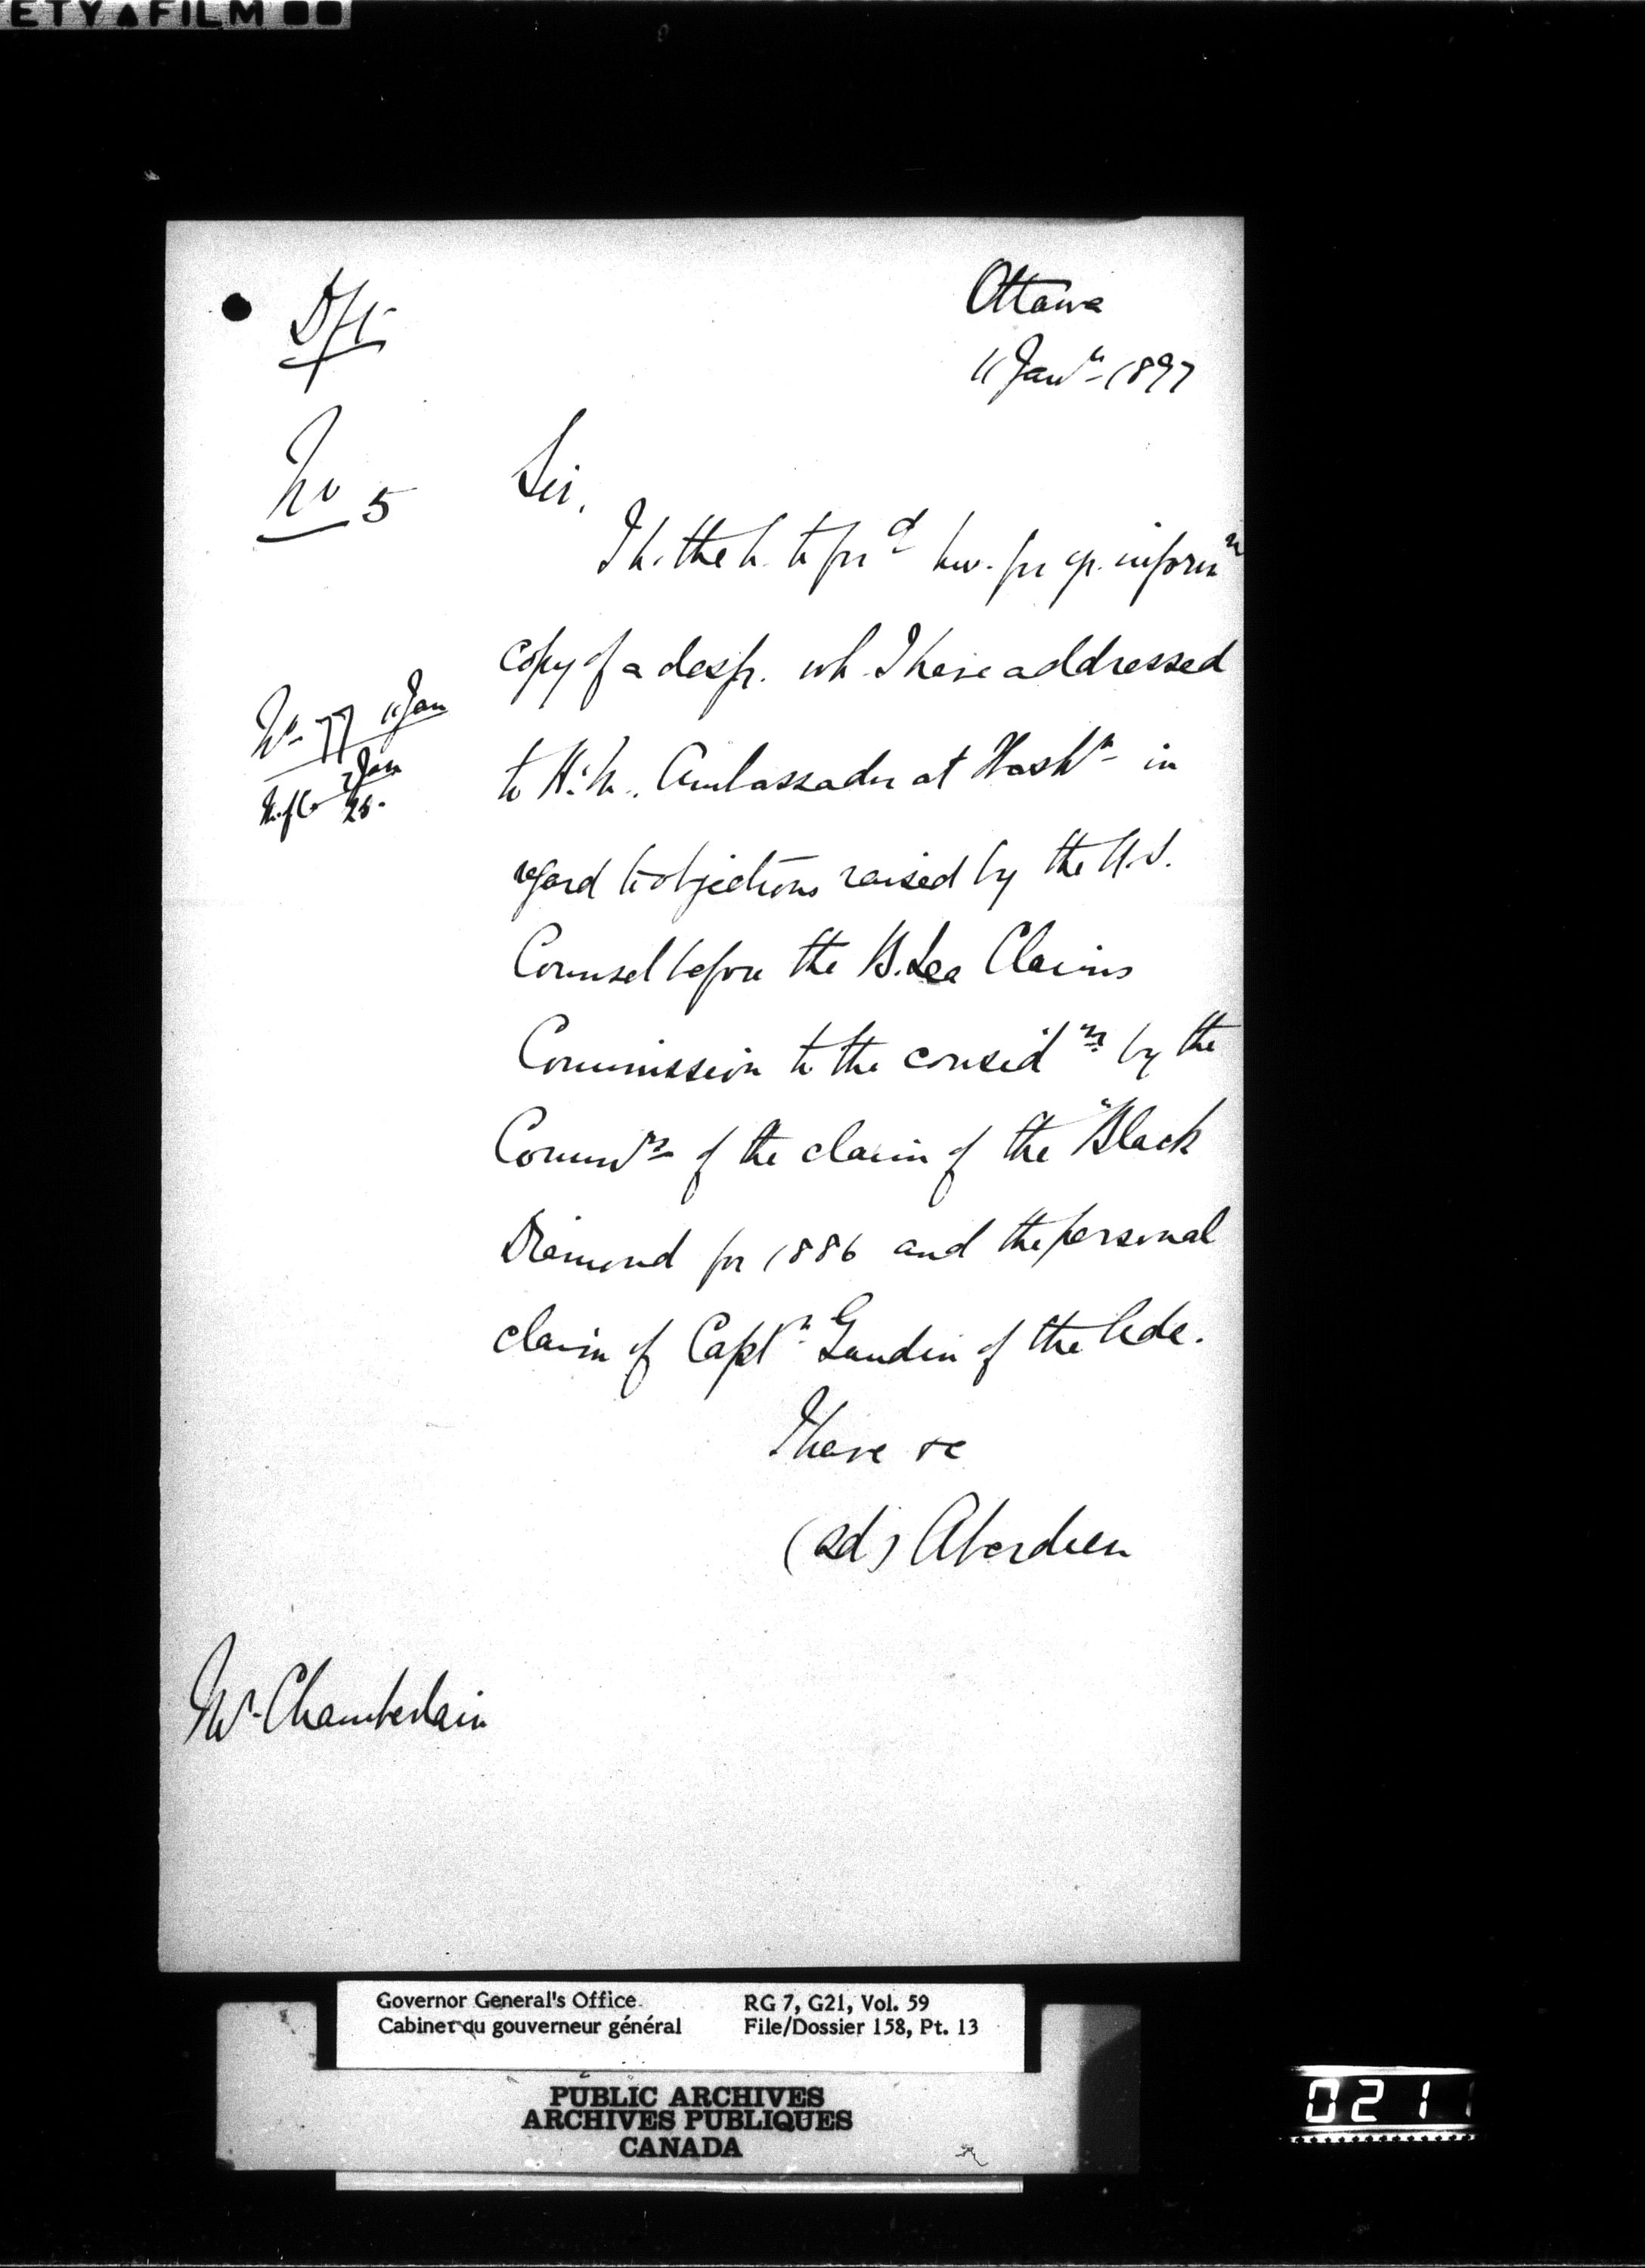 ETY▲FILM
Dft
Ottawa
11 Jany 1897
No 5
Sir,
I h. the h. to frd hw. for yr. informn
copy of a desp. wh. I have addressed
No 77 11 Jan
to H.M. Ambassador at Washn in
regard to objections raised by the U.S.
Counsel before the B. Sea Claims
Commission to the considn by the
Commrs of the claim of the "Black
Diamond for 1886 and the personal
claim of Captn Gaudin of the Ada.
I have &c
(sd) Aberdeen
Mr Chamberlain
Governor General's Office
Cabinet du gouverneur général
RG 7, G21, Vol. 59
File/Dossier 158, Pt. 13
PUBLIC ARCHIVES
ARCHIVES PUBLIQUES
CANADA
0211